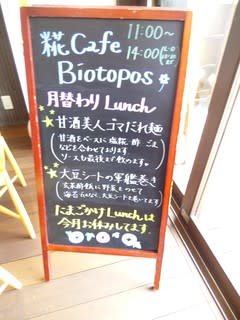 糀Cafe
11:00〜
14:00
Biotopos
月替わりLunch
★甘酒美人ゴマだれ麺
甘酒をベースに塩糀、酢、ごま
などを合わせております。
ソースも最後まで飲めます。
★大豆シートの軍艦巻き
玄米酢飯に野菜をのせて
大豆シートで巻いてます
たまごかけLunchは
今月お休みしてます。